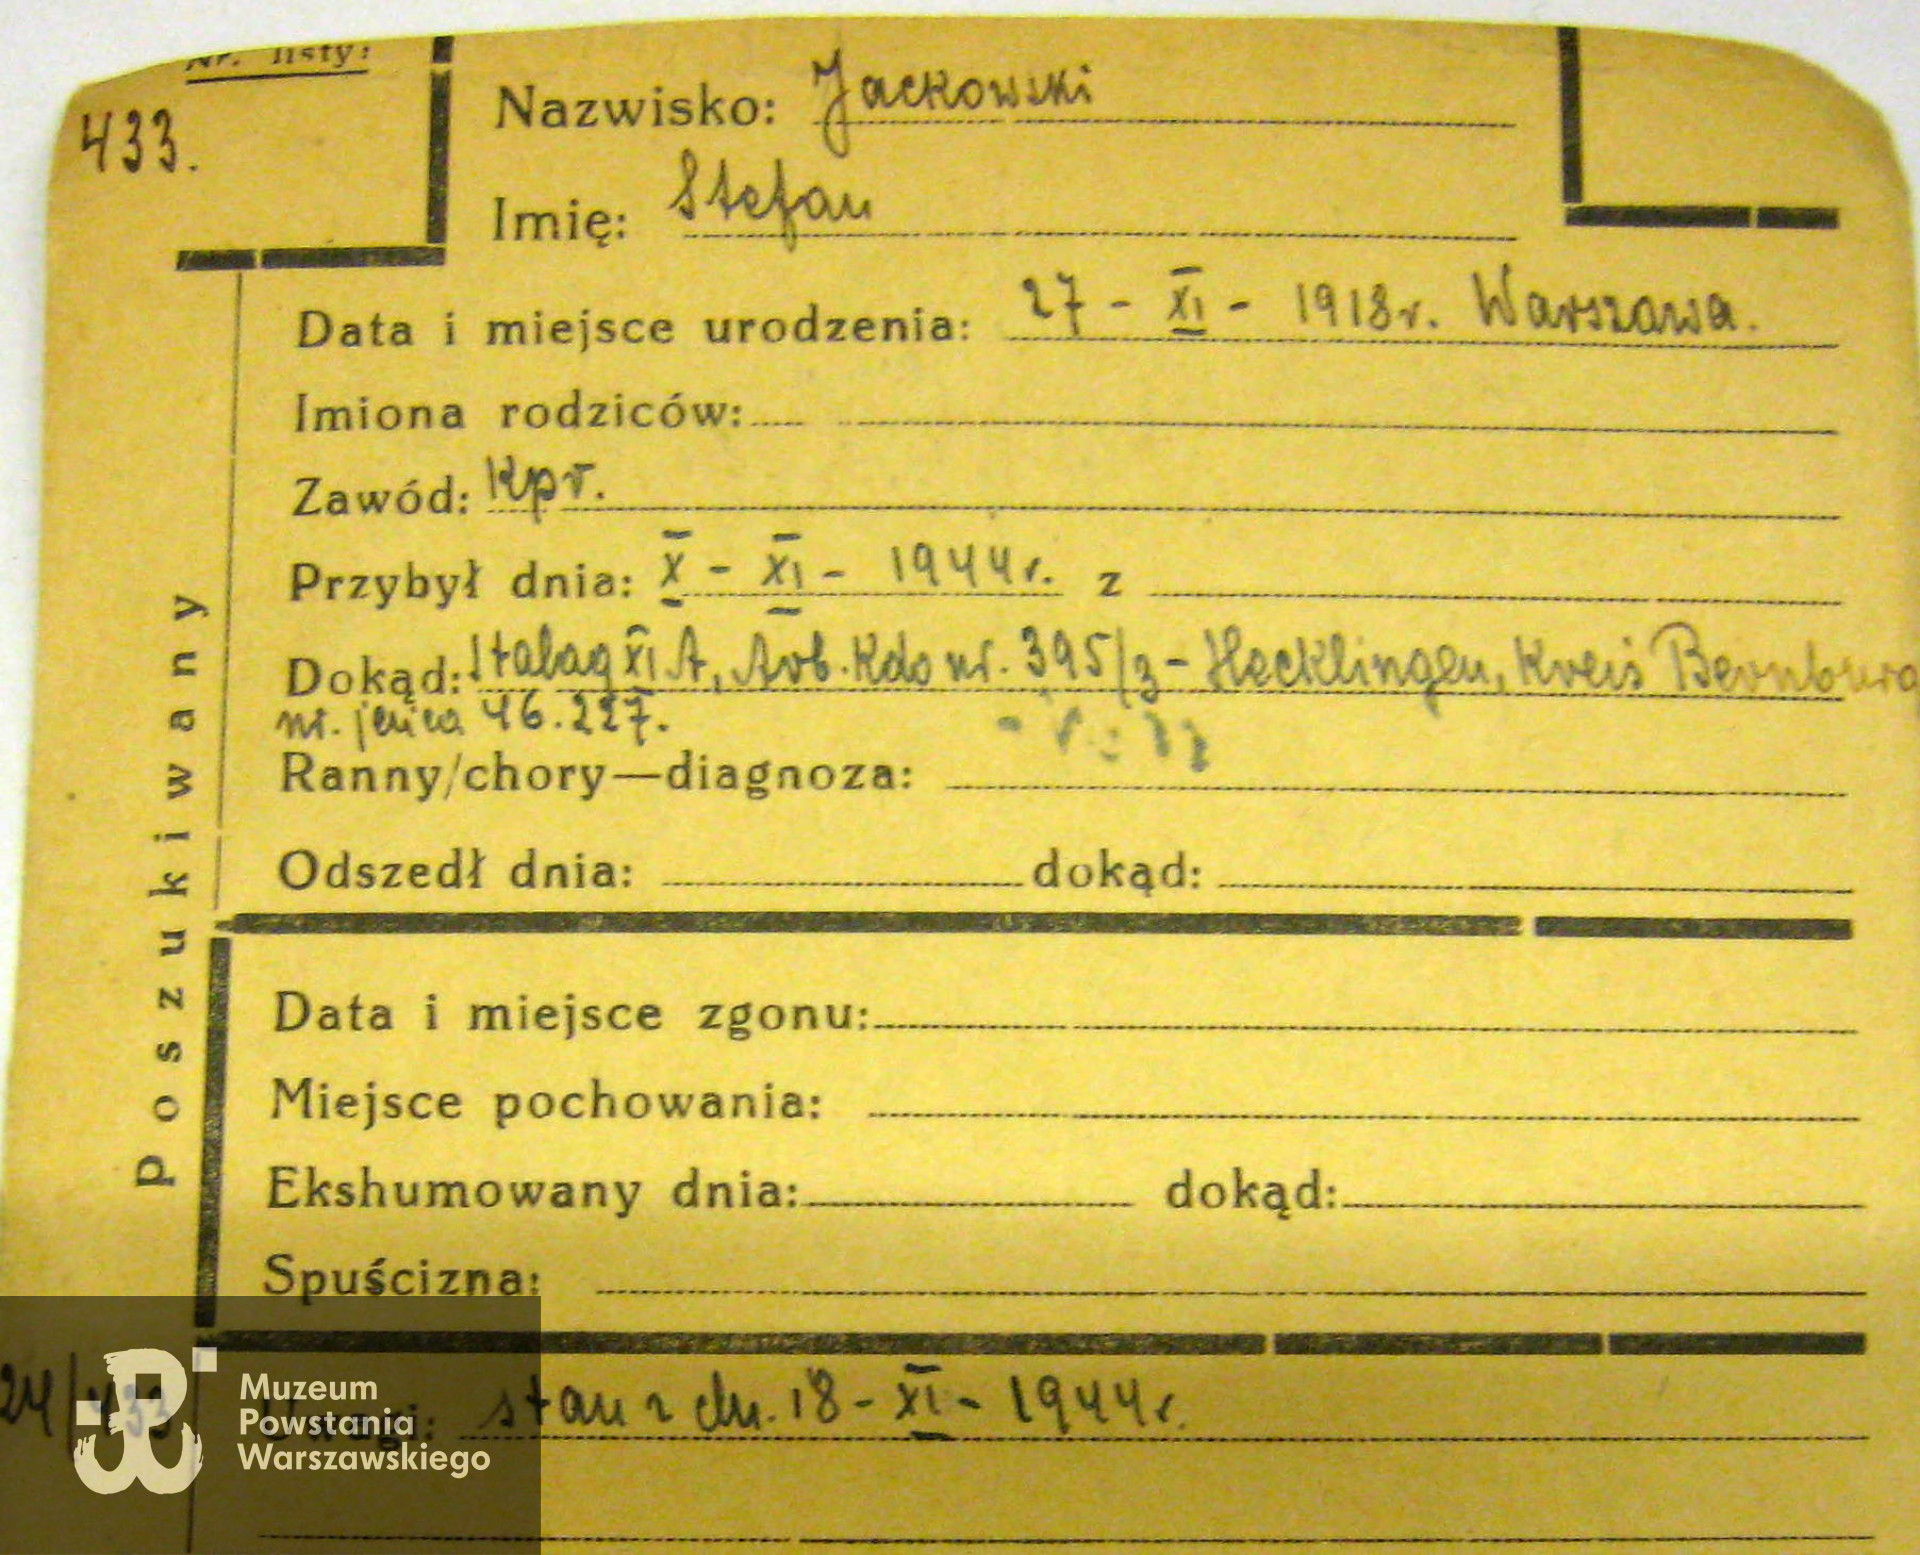 Nr. listy:
433.
Nazwisko: Jackowski
Imię: Stefan
Data i miejsce urodzenia: 27 - XI - 1918r. Warszawa.
Imiona rodziców:
Zawód: Kpr.
Przybył dnia: X - XI - 1944r. z
Dokąd: Stalag XI A, Arb. Kdo nr. 395/3 - Hecklingen, Kreis Bernburg
nr. jeńca 46.227.
Ranny/chory—diagnoza:
Odszedł dnia: dokąd:
Poszukiwany
Data i miejsce zgonu:
Miejsce pochowania:
Ekshumowany dnia: dokąd:
Spuścizna:
24/433
Uwagi: stan z dn. 18 - XI - 1944r.
Muzeum
Powstania
Warszawskiego